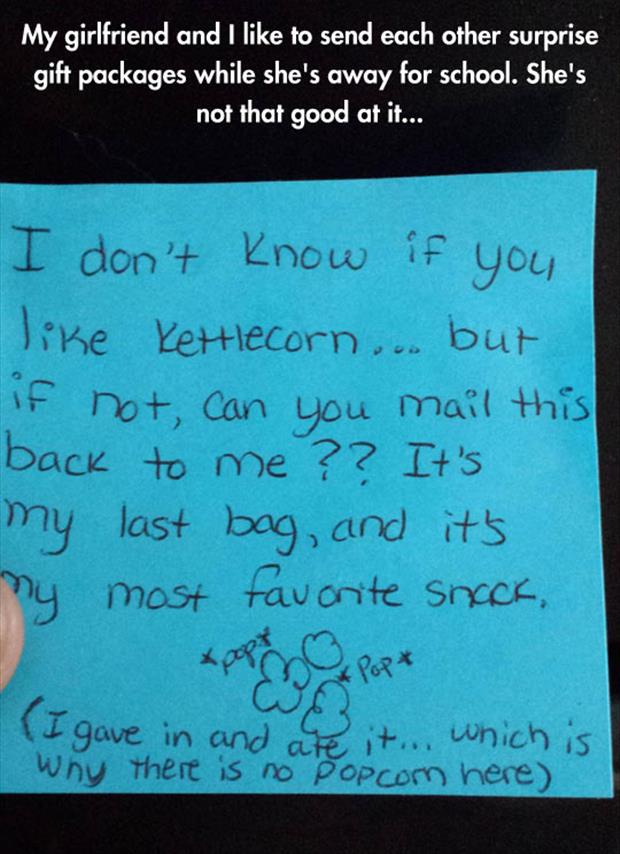 My girlfriend and I like to send each other surprise
gift packages while she's away for school. She's
not that good at it...
I don't know if you
like Kettlecorn... but
if not, can you mail this
back to me ?? It's
my last bag, and it's
my most favorite snack.
*pop* *Pop*
(I gave in and ate it... which is
why there is no popcorn here)